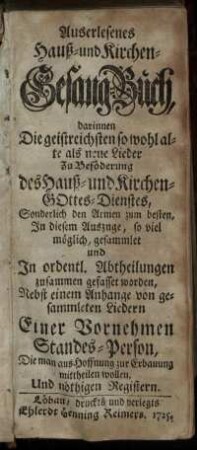 Auserlesenes
Hauß-und Kirchen-
Gesang-Buch,
darinnen
Die geistreichsten so wohl al-
te als neue Lieder
Zu Beföderung
des Hauß-und Kirchen-
GOttes-Dienstes,
Sonderlich den Armen zum besten,
In diesem Auszuge, so viel
möglich, gesammlet
und
In ordentl. Abtheilungen
zusammen gefasset worden,
Nebst einem Anhange von ge-
sammleten Liedern
Einer Vornehmen
Standes-Person,
Die man aus Hoffnung zur Erbauung
mittheilen wollen,
Und nöthigen Registern.
Löbau, druckts und verlegts
Ehlerdt Henning Reimers. 1725.